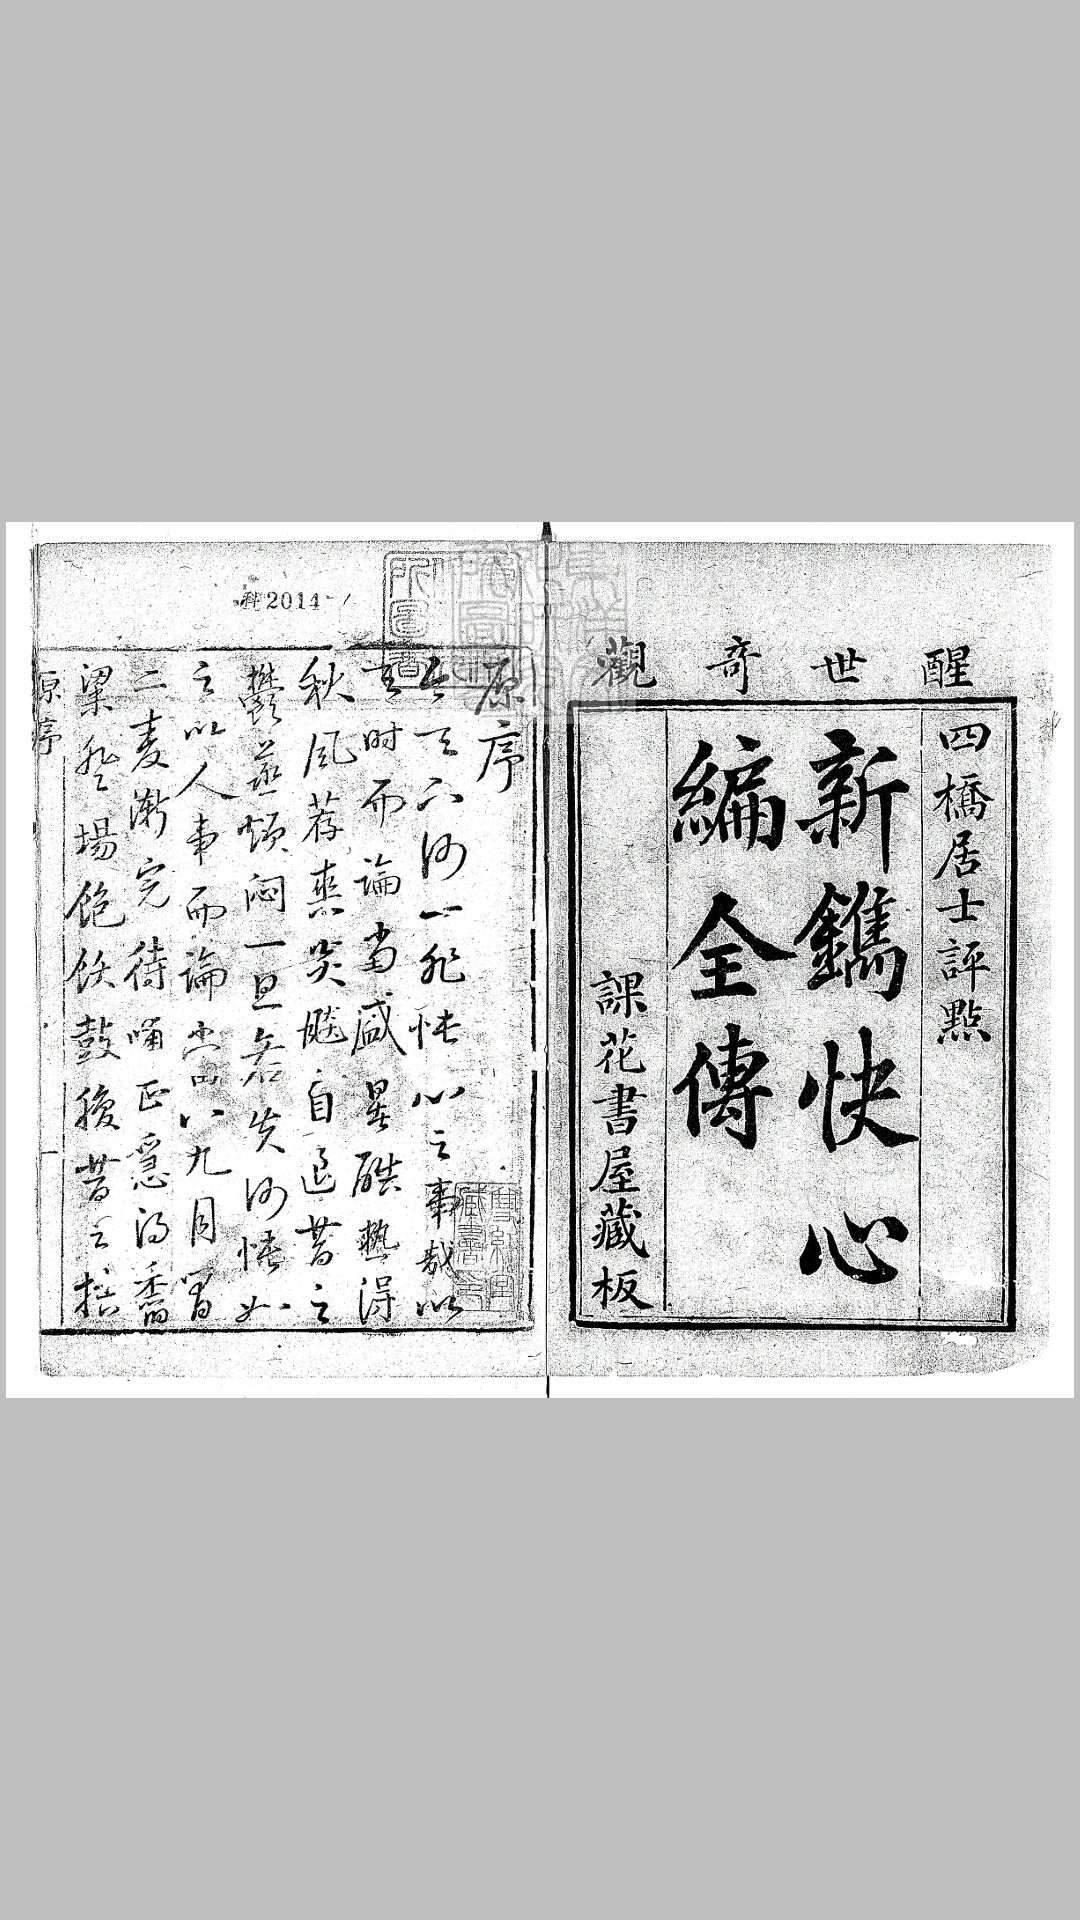 醒世奇觀
四橋居士評點
新鐫快心
編全傳
課花書屋藏板
科2014-1
原序
夫天下何一非快心之事哉以
天時而論當盛暑酷熱得
秋風荐爽炎颷自退昔之
鬱蒸煩悶一旦若失何快如
之以人事而論當八九月間
二麥漸完待哺正急得香
粱登場飽飫鼓腹昔之枵
原序
一